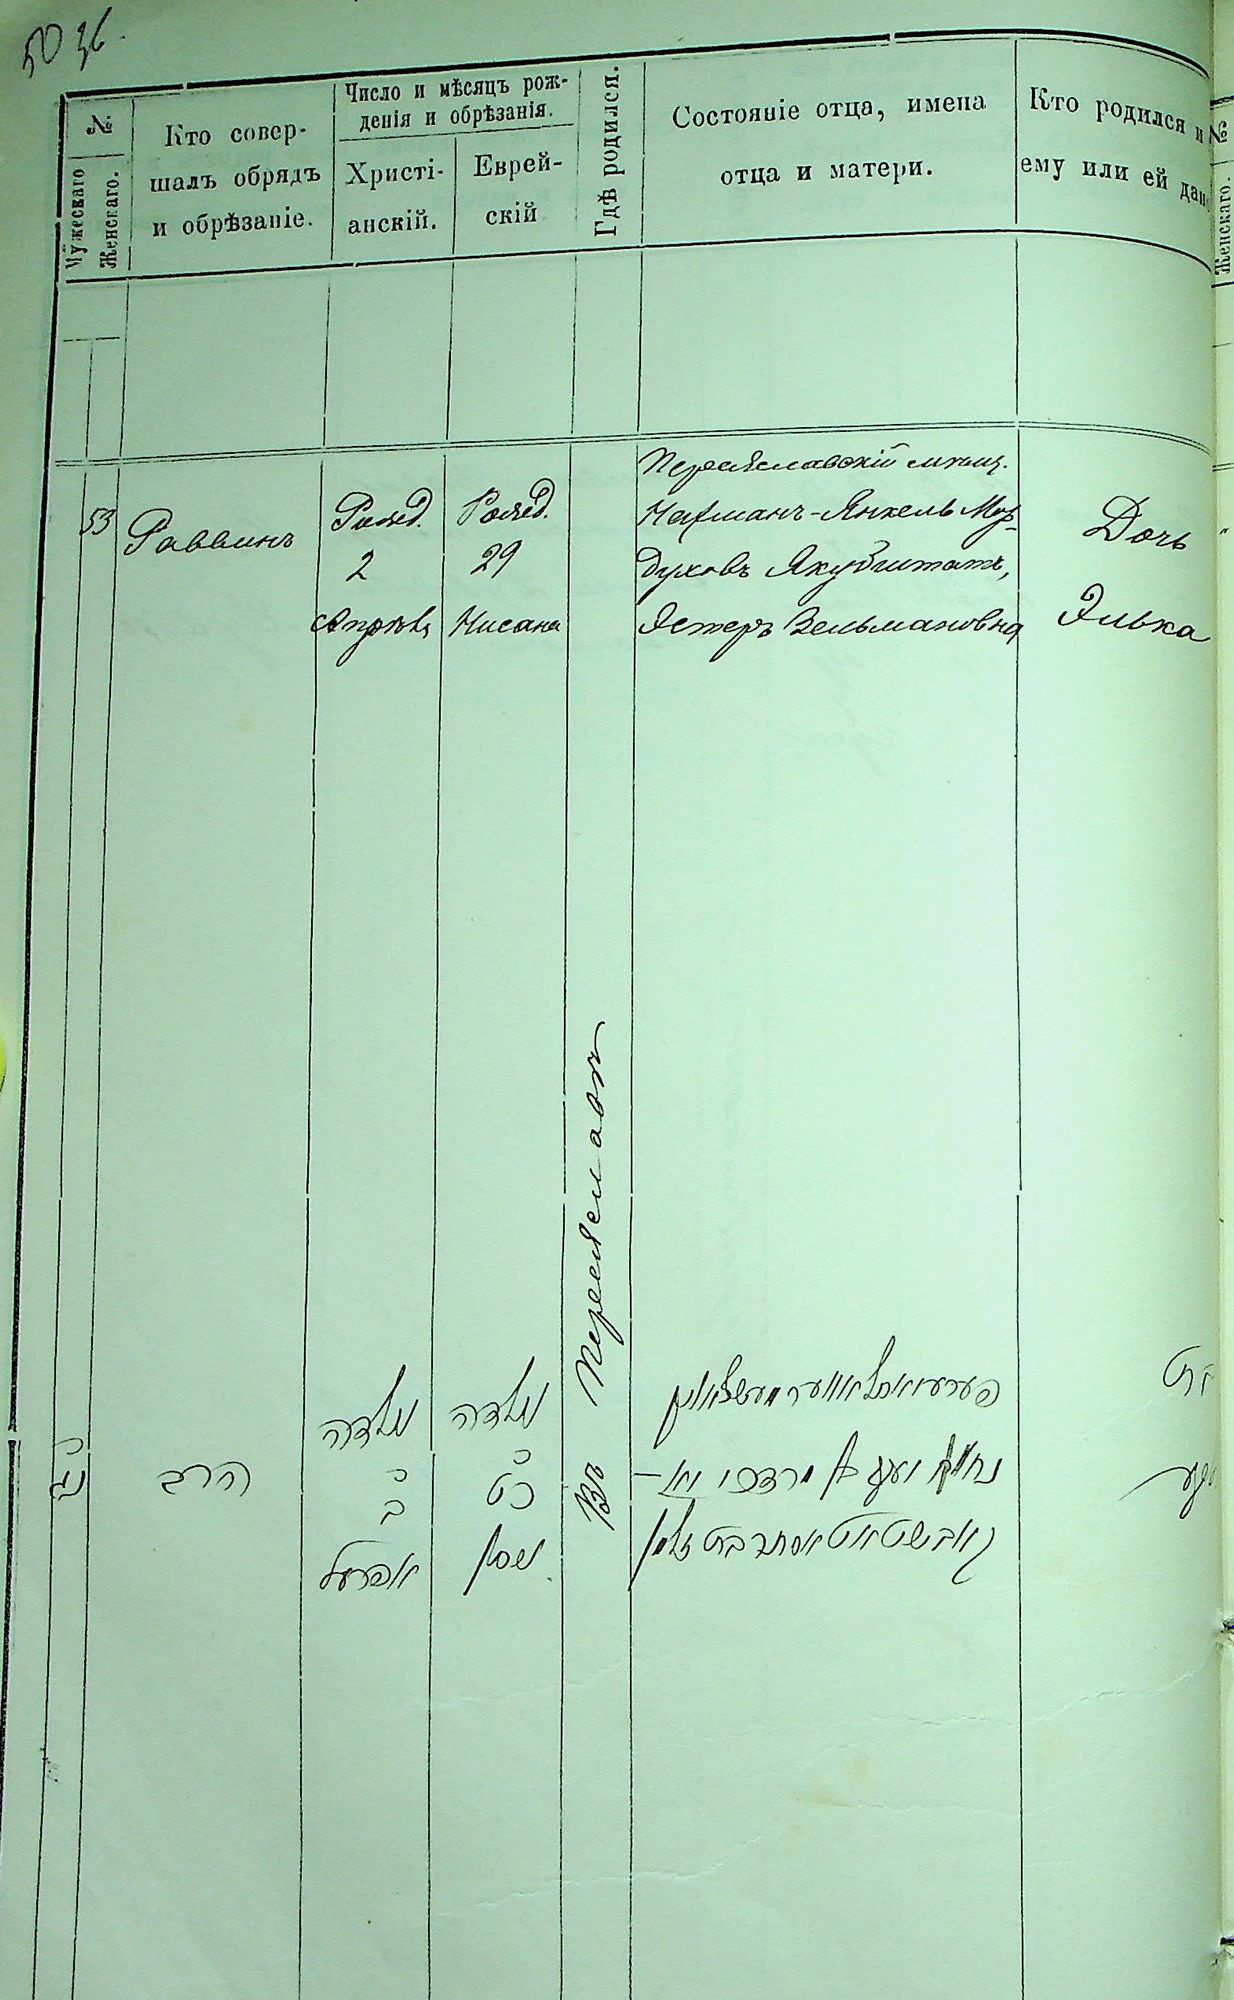 50 36.
№
Мужескаго
Женскаго.
Кто совер-
шалъ обрядъ
и обрѣзаніе.
Число и мѣсяцъ рож-
денія и обрѣзанія.
Христі-
анскій.
Еврей-
скій
Гдѣ родился.
Состояніе отца, имена
отца и матери.
Кто родился и
ему или ей дан
№
Женскаго.
53
Раввинъ
Рожд.
2
Апрѣля
Рожд.
29
Нисана
Въ Переяславѣ
Переяславскій мѣщ.
Нахманъ-Янкель Мор-
духовъ Якубштатъ,
Эстеръ Зельмановна
Дочь
Элька
נג
הרב
נולדה
ב
אפרעל
נולדה
כט
ניסן
נחמן יעקב
מרדכי
יאקאבשטאט אסתר בת זלמן